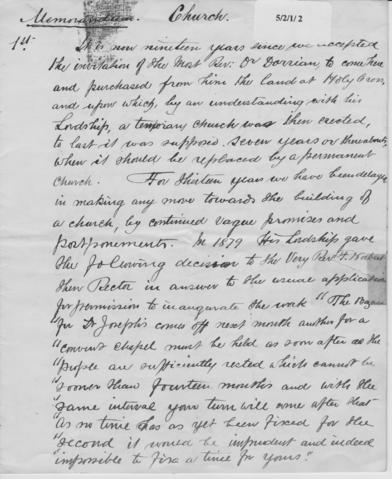 Memorandum. Church. 5/2/1/2
1st
It is now nineteen years since we accepted
the invitation of the Most Rev: Dr Dorrian, to come here
and purchased from him the land at Holy Cross,
and upon which, by an understanding with his
Lordship, a temporary church was then erected,
to last it was supposed, seven years or thereabouts,
when it should be replaced by a permanent
church. For thirteen years we have been delayed
in making any move towards the building of
a church, by continued vague promises and
postponements. In 1879 His Lordship gave
the following decision to the Very Rev: Fr.
then Rector in answer to the usual application
for permission to inaugurate the work "The
"for St Joseph's comes off next month another for a
"convent chapel must be held as soon after as the
"people are sufficiently rested which cannot be
"sooner than fourteen months and with the
"same interval your turn will come after that
"As no time has as yet been fixed for the
"second it would be imprudent and indeed
"impossible to fix a time for yours."